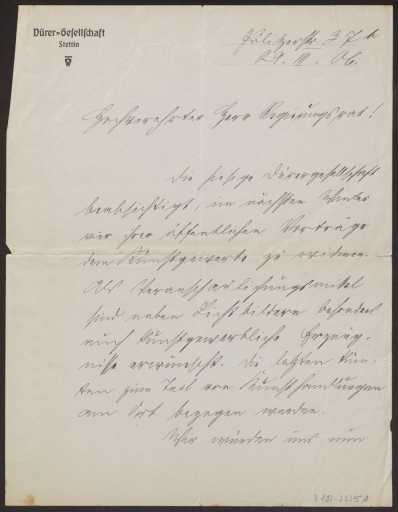 Dürer-Gesellschaft
Stettin
Pölitzerstr. 37
29. III. 06.
Hochverehrter Herr Regierungsrat!
Die hiesige Dürergesellschaft
beabsichtigt, im nächsten Winter
vier ihrer öffentlichen Vorträge
dem Kunstgewerbe zu widmen.
Als Veranschaulichungsmittel
sind neben Lichtbildern besonders
auch kunstgewerbliche Erzeug-
nisse erwünscht. Die letzten könn-
ten zum Teil von Kunsthandlungen
am Ort begegen werden.
Wir würden uns nun